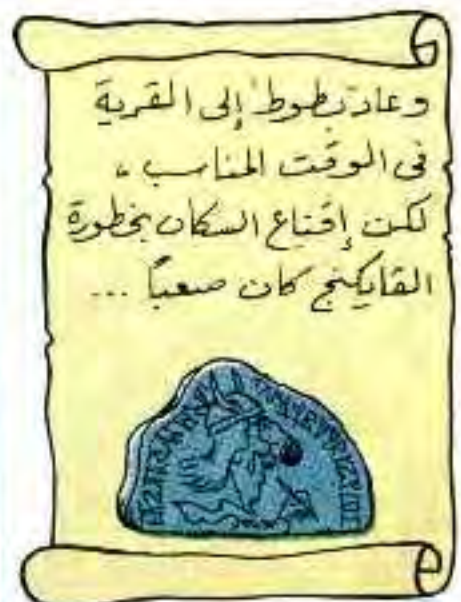 وعاد بطوط إلى القرية
فى الوقت المناسب ،
لكن إقناع السكان بخطورة
القايكنج كان صعباً ...